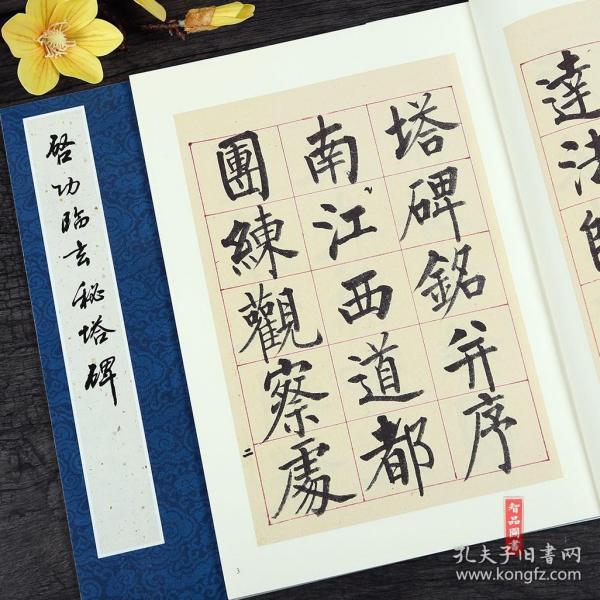 启功临玄秘塔碑
塔碑銘并序
南江西道都
團練觀察處
二
3
達法師
智品圖書
孔夫子旧书网
www.kongfz.com